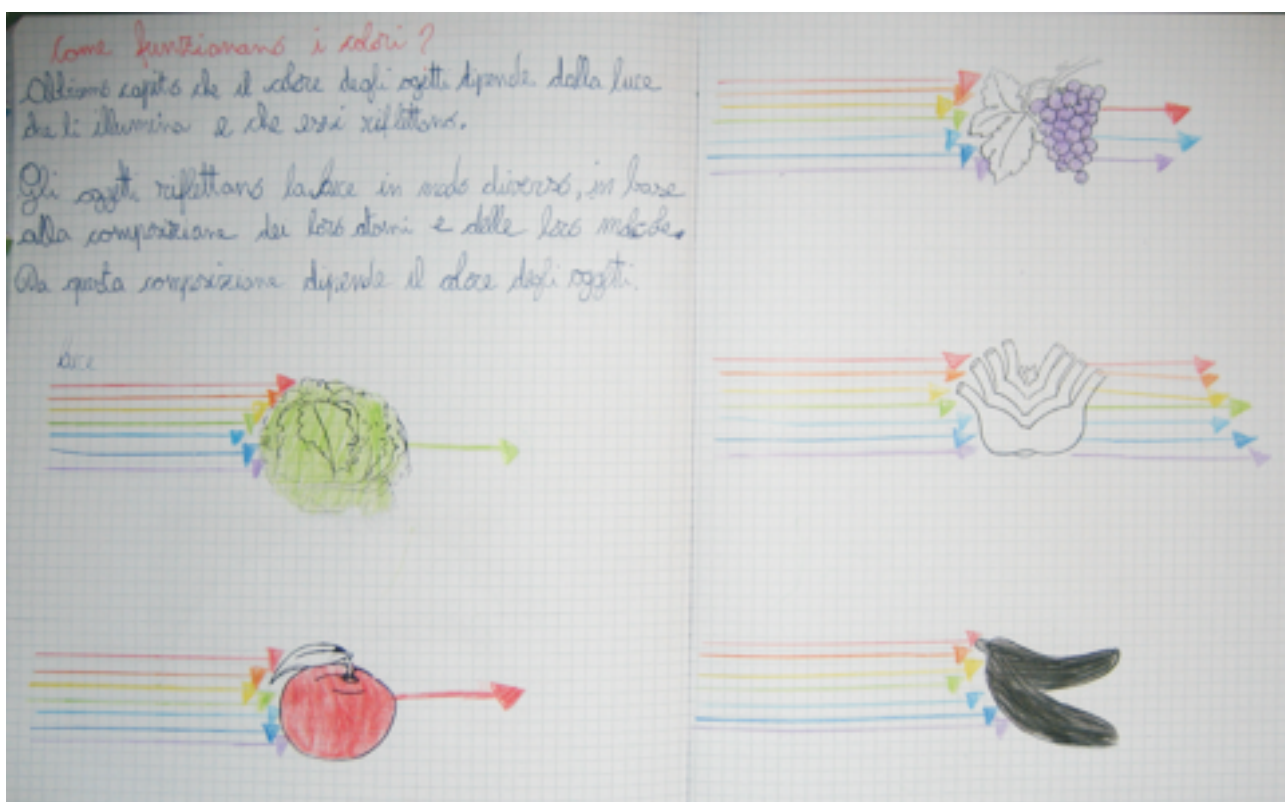 Come funzionano i colori?
Abbiamo capito che il colore degli ogetti dipende dalla luce
che li illumina e che essi riflettono.
Gli oggetti riflettano la luce in modo diverso, in base
alla composizione dei loro atomi e delle loro molecole.
Da questa composizione dipende il colore degli oggetti.
luce